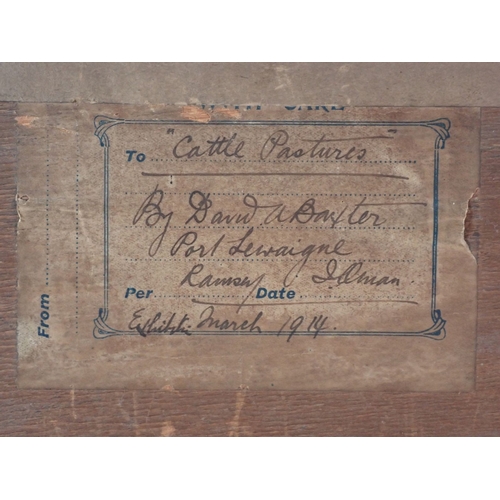 WITH CARE
To "Cattle Pastures"
By David A Baxter
Port Lewaigne
Ramsey I.Oman.
Per Date
March 1914.
From